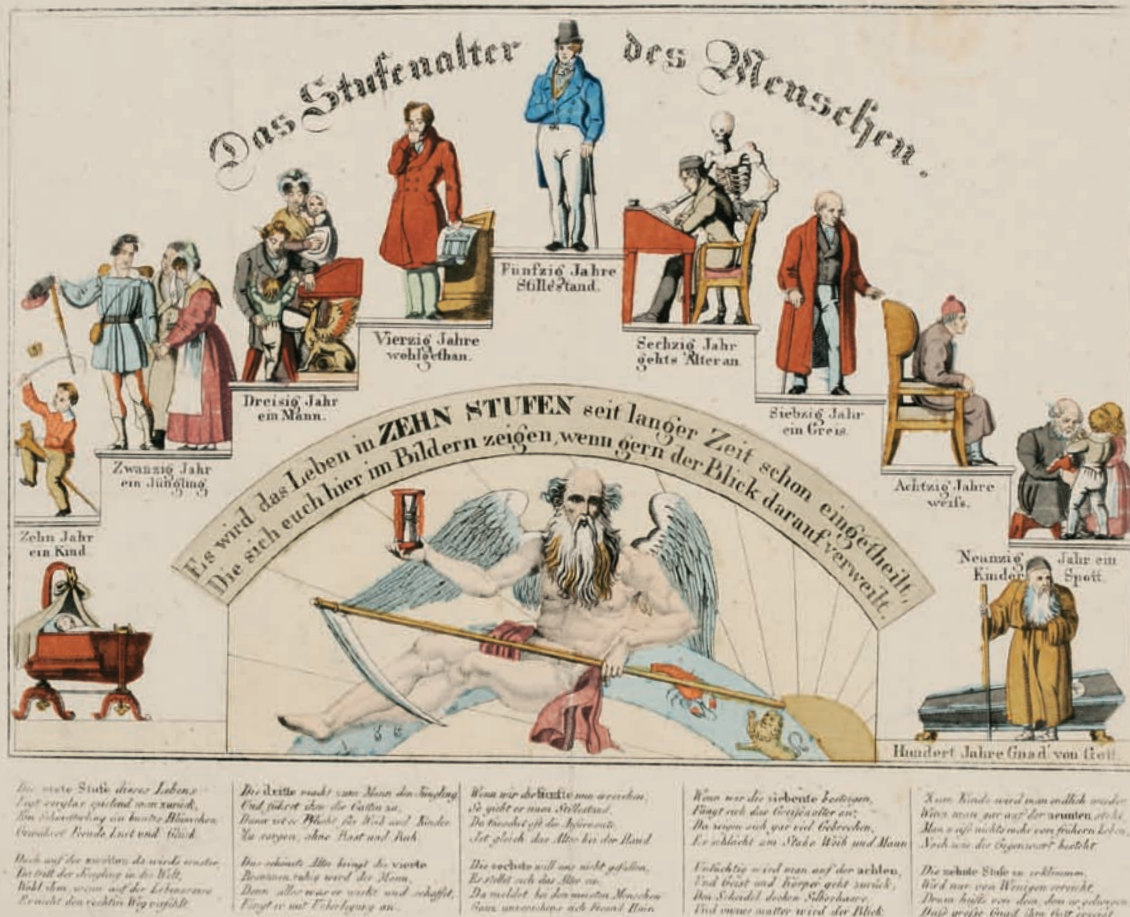 Das Stufenalter des Menschen.
Fünfzig Jahre
Stillestand.
Vierzig Jahre
wohlgethan.
Sechzig Jahr
gehts Alter an.
Dreisig Jahr
ein Mann.
Siebzig Jahr
ein Greis.
Zwanzig Jahr
ein Jüngling
Achtzig Jahre
weiss.
Zehn Jahr
ein Kind
Neunzig Jahr ein
Kinder Spott.
Es wird das Leben in ZEHN STUFEN seit langer Zeit schon eingetheilt,
Die sich euch hier im Bildern zeigen, wenn gern der Blick darauf verweilt.
Hundert Jahre Gnad' von Gott.
Die erste Stufe dieses Lebens
Legt sorglos spielend man zurück,
Ein Schmetterling an bunten Blümchen
Gewähret Freude Lust und Glück.
Doch auf der zweiten da wirds ernster,
Da tritt der Jüngling in die Welt,
Wohl ihm wenn auf der Lebensreise
Er nicht den rechten Weg verfehlt.
Die dritte macht zum Mann den Jüngling
Und führet ihm die Gattin zu,
Dann ist es Pflicht für Weib und Kinder
Zu sorgen, ohne Rast und Ruh
Das schönste Alter bringt die vierte
Besonnen ruhig wird der Mann,
Denn alles was er wirkt und schaffet,
Fängt er mit Ueberlegung an.
Wenn wir die fünfte nun erreichen,
So giebt es nun Stillstand,
Da
Ist gleich das Alter bei der Hand
Die sechste will uns nicht gefallen,
Es stellet sich das Alter an,
Da meldet bei den meisten Menschen
Ganz unversehens sich Freund Hain
Wenn wir die siebente besteigen,
Fängt sich das Greisenalter an;
Da zeigen sich gar viel Gebrechen,
Er schleicht am Stabe Weib und Mann
wird man auf der achten,
Und Geist und Körper geht zurück,
Den Scheidel decken Silberhaare
Und immer matter wird der Blick
Zum Kinde wird man endlich wieder
Wenn man gar auf der neunten steht,
Man weiß nichts mehr von frühern Leben,
Noch wie die Gegenwart besteht.
Die zehnte Stufe zu erklimmen,
Wird nur von Wenigen erreicht,
Drum heißt's von dem, dem es gelungen